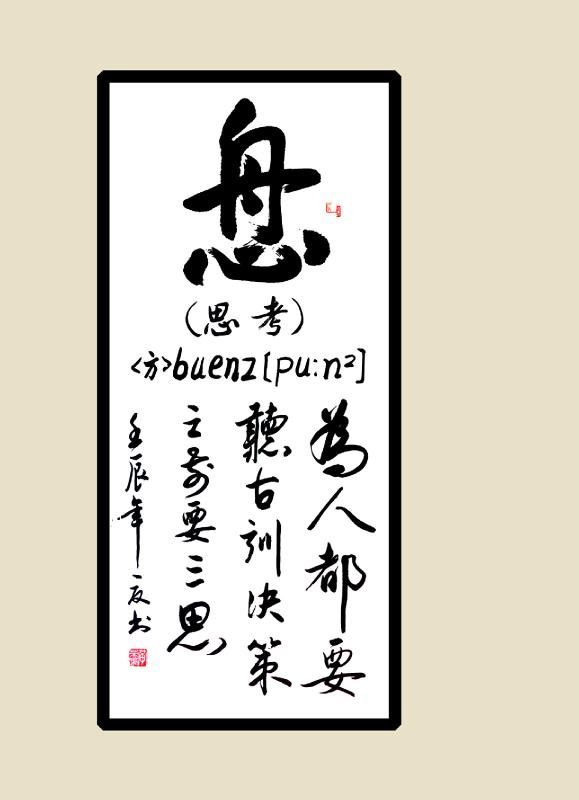 (思考)
<方>buenz[pu:n²]
為人都要
聽古訓決策
之前要三思
壬辰年夏书